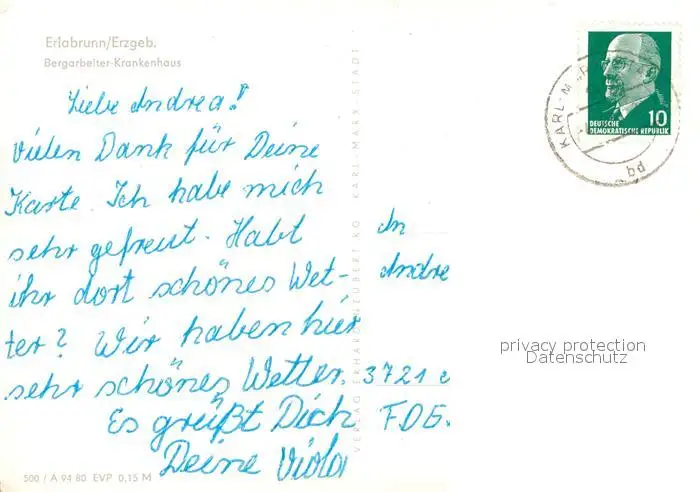 Erlabrunn/Erzgeb.
Bergarbeiter-Krankenhaus
Liebe Andrea!
Vielen Dank für Deine
Karte. Ich habe mich
sehr gefreut. Habt
ihr dort schönes Wet-
ter? Wir haben hier
sehr schönes Wetter.
Es grüßt Dich
Deine Viola
500 / A 94 80 EVP 0,15 M
VERLAG ERHARD NEUBERT KG KARL-MARX-STADT
DEUTSCHE
DEMOKRATISCHE REPUBLIK
10
KARL-M
bd
An
Andre
privacy protection
Datenschutz
3721
F.D.G.